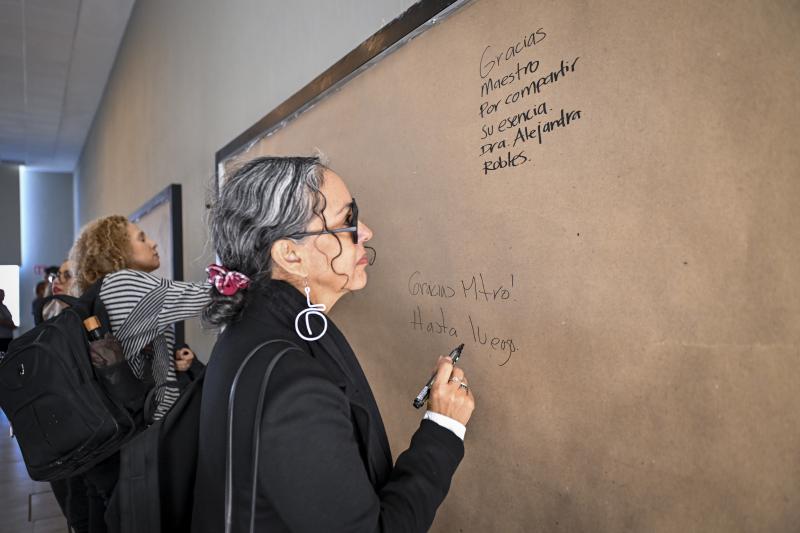 Gracias
Maestro
Por compartir
Su esencia.
Dra. Alejandra
Robles.
Gracias Mtro!
Hasta luego.